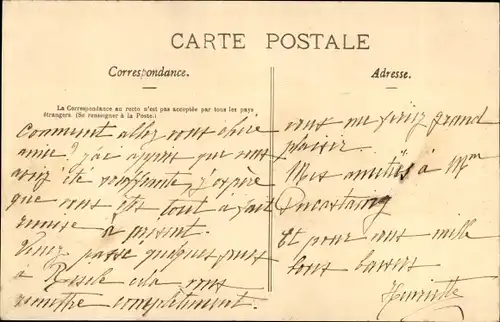 CARTE POSTALE
Correspondance.
Adresse.
La Correspondance au recto n'est pas acceptée par tous les pays
étrangers. (Se renseigner à la Poste.)
Comment allez vous chère
amie? j'ai appris que vous
avez été souffrante j'espère
que vous êtes tout a fait
remise à présent.
Venez passer quelques jours
à cela vous
remettra complètement.
vous me feriez grand
plaisir.
Mes amitiés à Mme
Et pour vous mille
bons baisers
Henriette